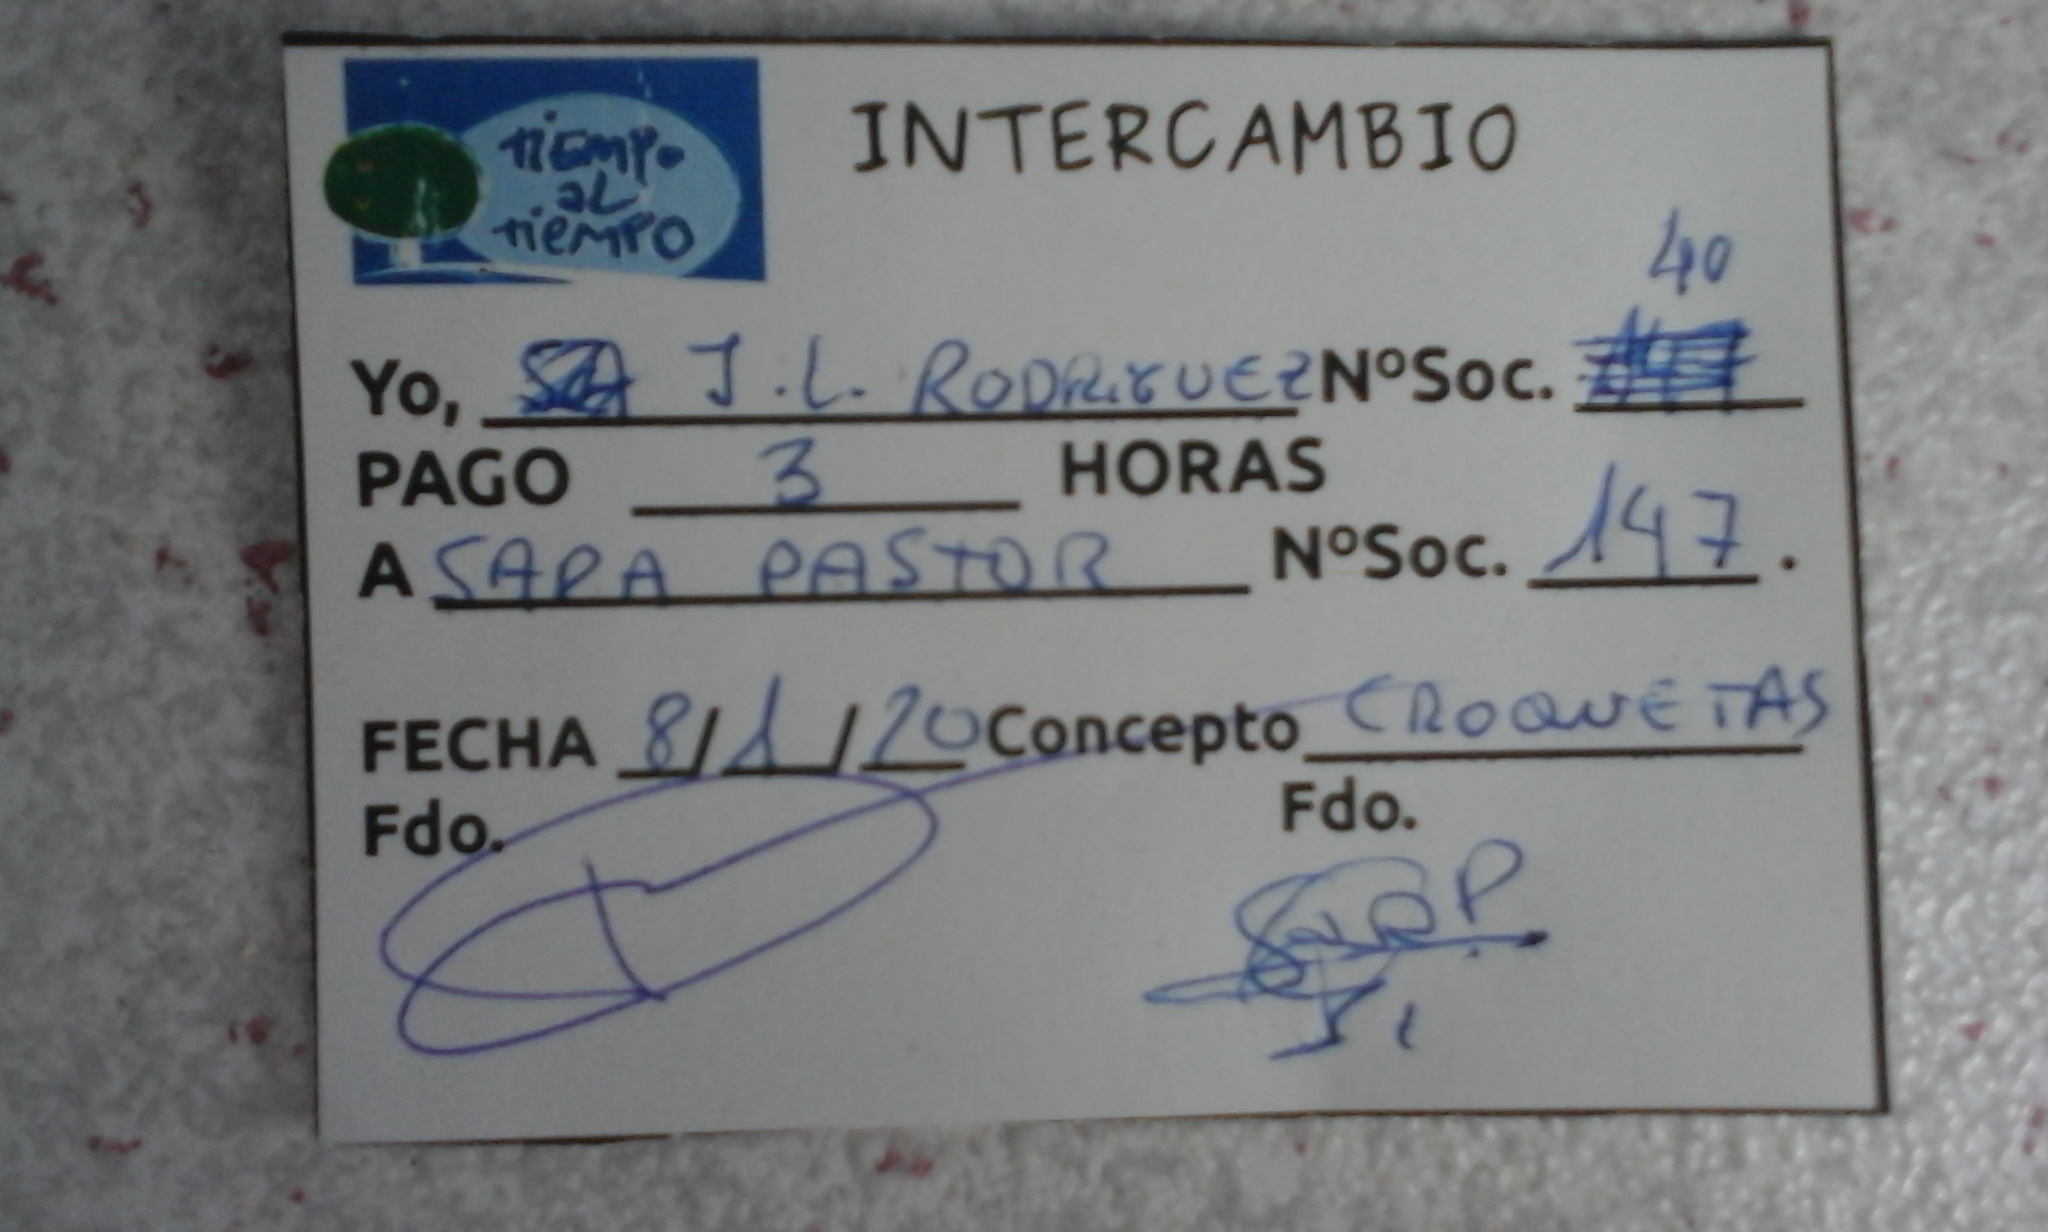 TIEMPO
AL
TIEMPO
INTERCAMBIO
40
Yo, J.L. RODRIGUEZ NºSoc.
PAGO 3 HORAS
A SARA PASTOR NºSoc. 147.
FECHA 8/1/20 Concepto CROQUETAS
Fdo. Fdo.